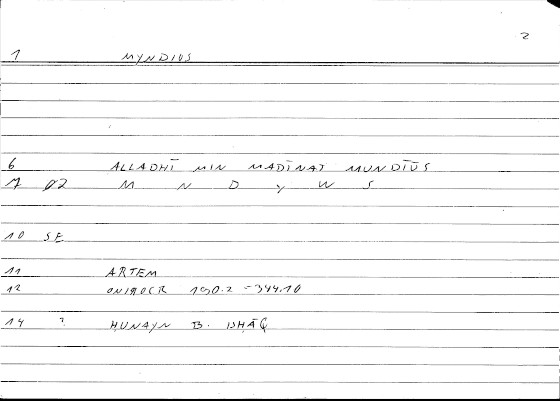 2
1 MYNDIUS
6 ALLADHĪ MIN MADĪNAT MUNDĪŪS
7 02 M N D Y W S
10 SE
11 ARTEM
12 ONIROCR 190.2 = 344.10
14 ? HUNAYN B. ISHĀQ